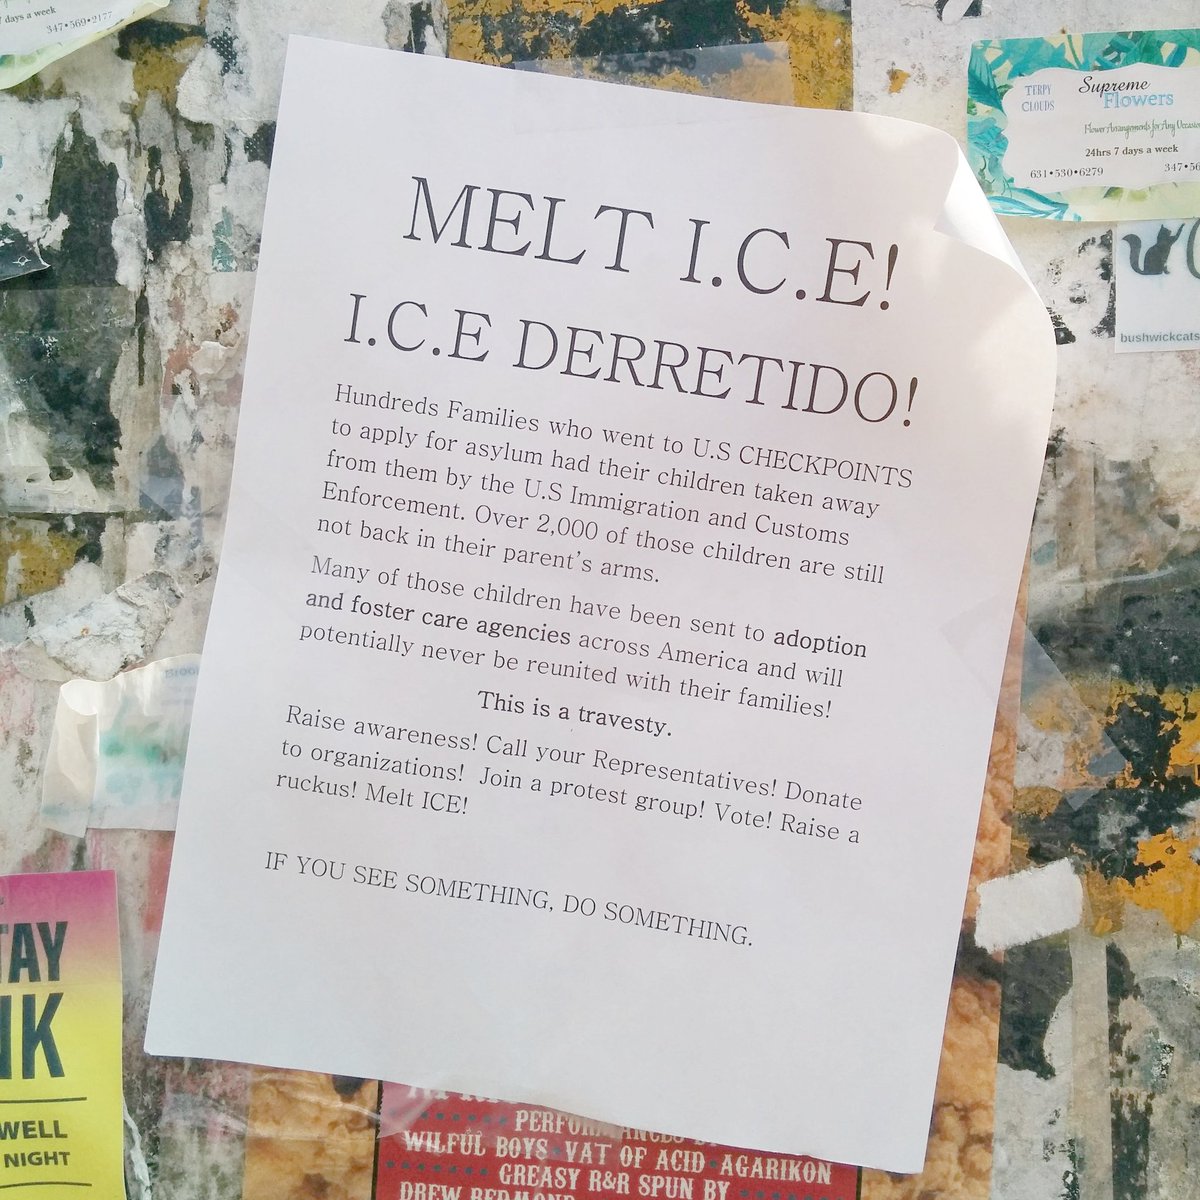 7 days a week
347•569•2177
TERPY
CLOUDS
Supreme
Flowers
Flower Arrangements for Any Occasion
24hrs 7 days a week
631•530•6279
347•56
bushwickcats
MELT I.C.E!
I.C.E DERRETIDO!
Hundreds Families who went to U.S CHECKPOINTS
to apply for asylum had their children taken away
from them by the U.S Immigration and Customs
Enforcement. Over 2,000 of those children are still
not back in their parent's arms.
Many of those children have been sent to adoption
and foster care agencies across America and will
potentially never be reunited with their families!
This is a travesty.
Raise awareness! Call your Representatives! Donate
to organizations! Join a protest group! Vote! Raise a
ruckus! Melt ICE!
IF YOU SEE SOMETHING, DO SOMETHING.
TAY
NK
WELL
NIGHT
WILFUL BOYS•VAT OF ACID•AGARIKON
GREASY R&R SPUN BY
DREW REDMOND